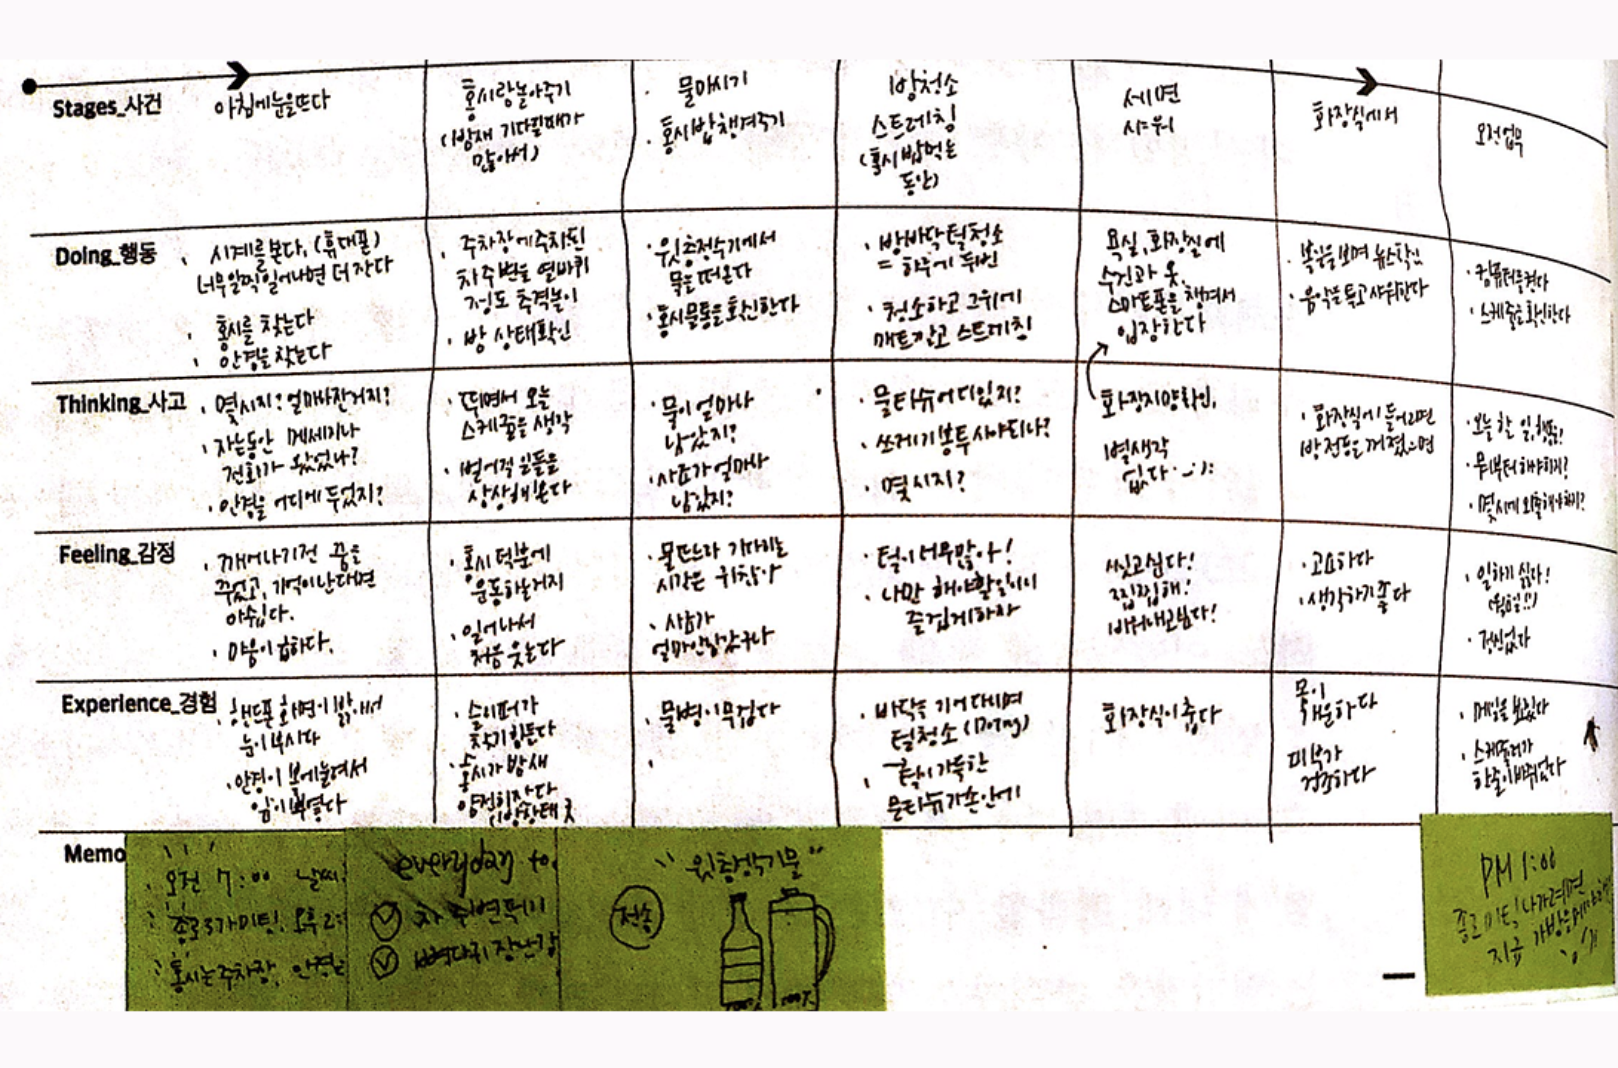 Stages_사건
아침에눈을뜨다
홍시랑놀아주기
(밤새 기다릴때가
많아서)
물마시기
· 홍시밥챙겨주기
방청소
스트레칭
(홍시밥먹는
동안)
세면
샤워
화장실에서
오전업무
Doing_행동
· 시계를본다, (휴대폰)
너무일찍일어나면 더잔다
· 홍시를 찾는다
· 안경을찾는다
· 주차장에주차된
차주변을 열바퀴
정도 추격놀이
· 방 상태확인
· 윗층정수기에서
물을떠온다
· 홍시물통을확인한다
· 방바닥털청소
= 하루에 두번
· 청소하고 그위에
매트깔고 스트레칭
욕실, 화장실에
수건과 옷,
스마트폰을 챙겨서
입장한다
· 음악을 틀고샤워한다
· 컴퓨터를켠다
· 스케줄을확인한다
Thinking_사고
· 몇시지? 얼마나잔거지?
· 자는동안 메세지나
전화가 왔었나?
· 안경을어디에두었지?
· 뛰면서 오늘
스케줄을생각
· 벌어질일들을
상상해본다
· 물이얼마나
남았지?
· 사료가얼마나
남았지?
· 물티슈어디있지?
· 쓰레기봉투사야되나?
· 몇시지?
화장지양확인,
별생각
없다
· 화장실에들어오면
방전등을꺼졌으면
· 오늘 할 일,
· 뭐부터해야하지?
· 몇시에외출해야하지?
Feeling_감정
· 깨어나기전 꿈을
꾸었고, 기억이난다면
아쉽다.
· 마음이급하다.
· 홍시덕분에
운동하는거지
· 일어나서
처음웃는다
· 물뜨느라 기다리는
시간은 귀찮아
· 사료가
얼마안남았구나
· 털이너무많아!
· 나만 해야할일이니
즐겁게하자
씻고싶다!
찝찝해!
비워내고싶다!
· 고요하다
· 생각하기좋다
· 일하기싫다!
· 정신없다
Experience_경험
· 핸드폰화면이밝아서
눈이부시다
· 안경이 볼에눌려서
· 슬리퍼가
찾기힘든다
· 홍시가밤새
얌전히잔다
· 물병이무겁다
·
· 바닥을 기어다니며
털청소 (Doing)
· 털이가득한
물티슈가손안에
화장실이춥다
몸이
개운하다
피부가
건조하다
· 메일을보았다
· 스케줄러가
한줄이바뀌었다
Memo
· 오전 7:00 날씨:
종로3가미팅! 오후2:
홍시는주차장, 안경은
everyday to
차 주변뛰기
뼈다귀장난감
전송
PM 1:00
종로미팅나가려면
지금